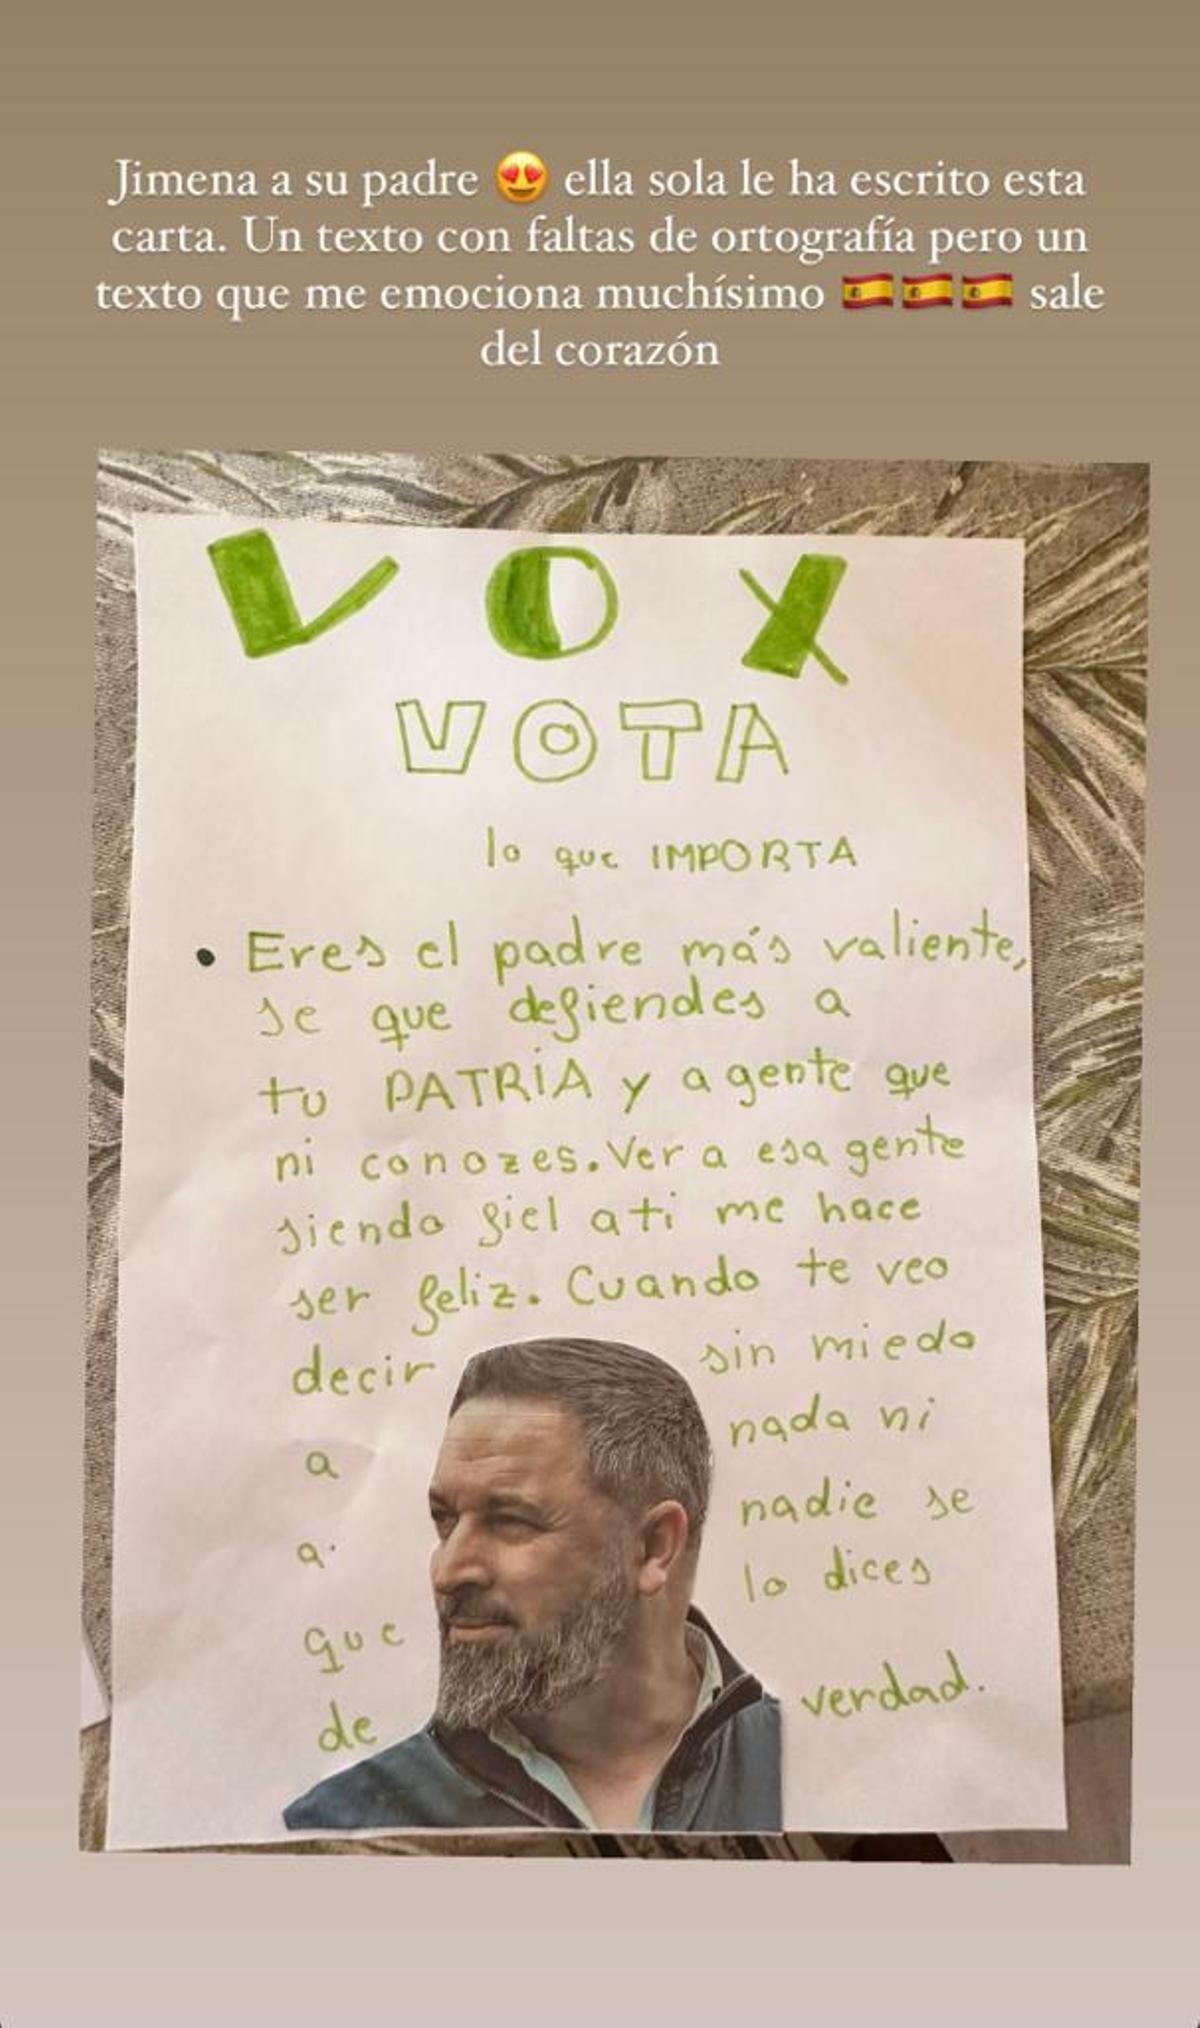 Jimena a su padre 😍 ella sola le ha escrito esta
carta. Un texto con faltas de ortografía pero un
texto que me emociona muchísimo 🇪🇸🇪🇸🇪🇸 sale
del corazón
VOX
VOTA
lo que IMPORTA
• Eres el padre más valiente,
se que defiendes a
tu PATRIA y a gente que
ni conozes. Ver a esa gente
siendo fiel a ti me hace
ser feliz. Cuando te veo
decir sin miedo
a nada ni
a nadie se
que lo dices
de verdad.